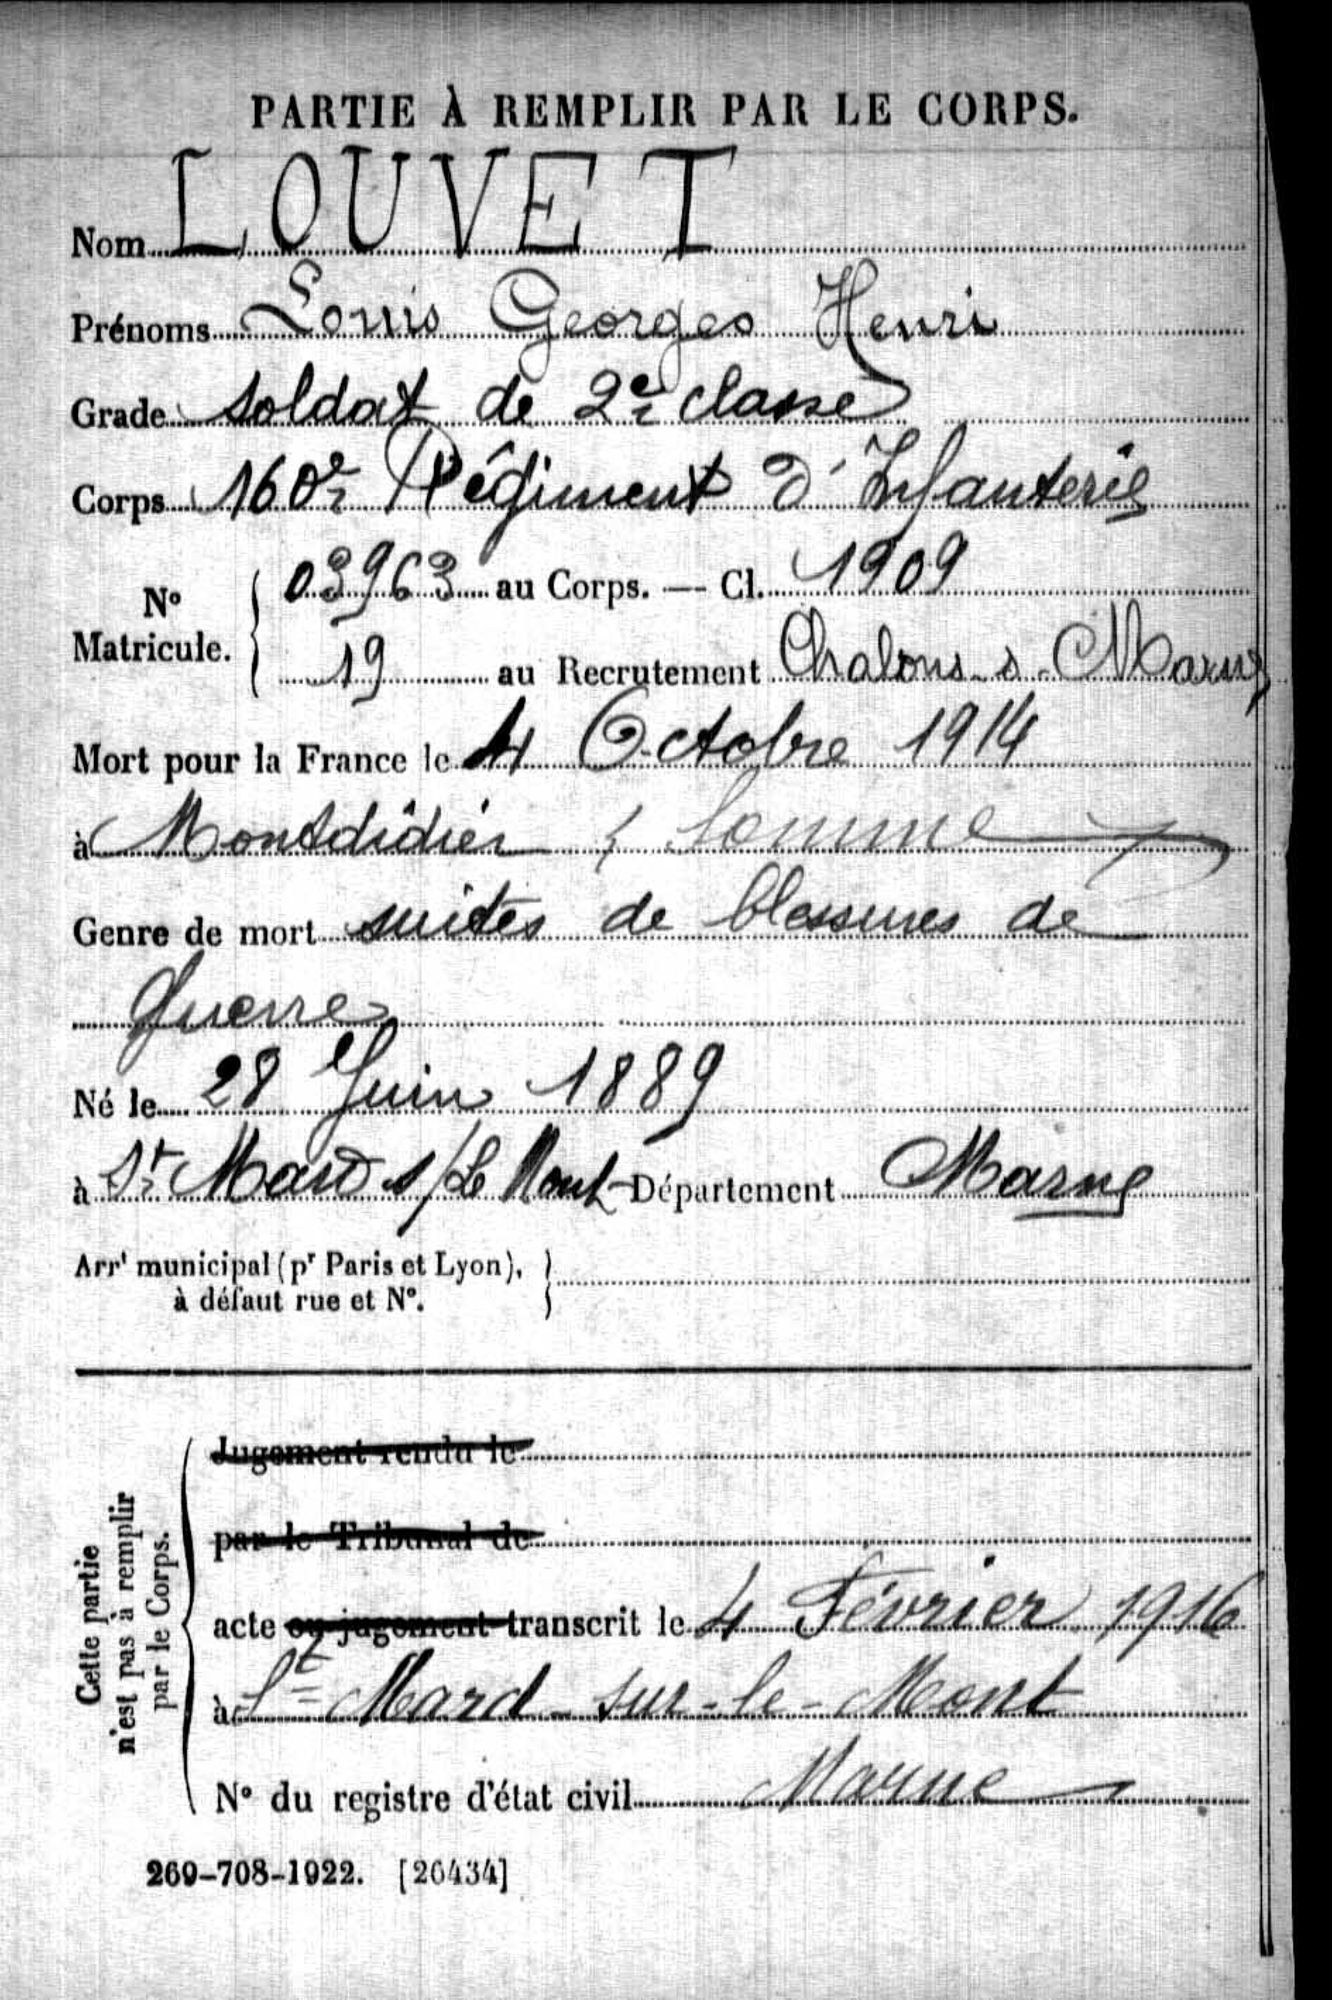 PARTIE À REMPLIR PAR LE CORPS.
Nom LOUVET
Prénoms Louis Georges Henri
Grade soldat de 2e classe
Corps 160e Régiment d'Infanterie
N° Matricule. 03963 au Corps. — Cl. 1909
19 au Recrutement Chalons-s-Marne
Mort pour la France le 4 Octobre 1914
à Montdidier, Somme
Genre de mort suites de blessures de
Guerre
Né le 28 Juin 1889
à St Mard s/Le Mont Département Marne
Arrt municipal (pr Paris et Lyon),
à défaut rue et N°.
Cette partie
n'est pas à remplir
par le Corps.
Jugement rendu le
par le Tribunal de
acte ou jugement transcrit le 4 Février 1916
à St Mard-sur-le-Mont
N° du registre d'état civil Marne
269-708-1922. [26434]